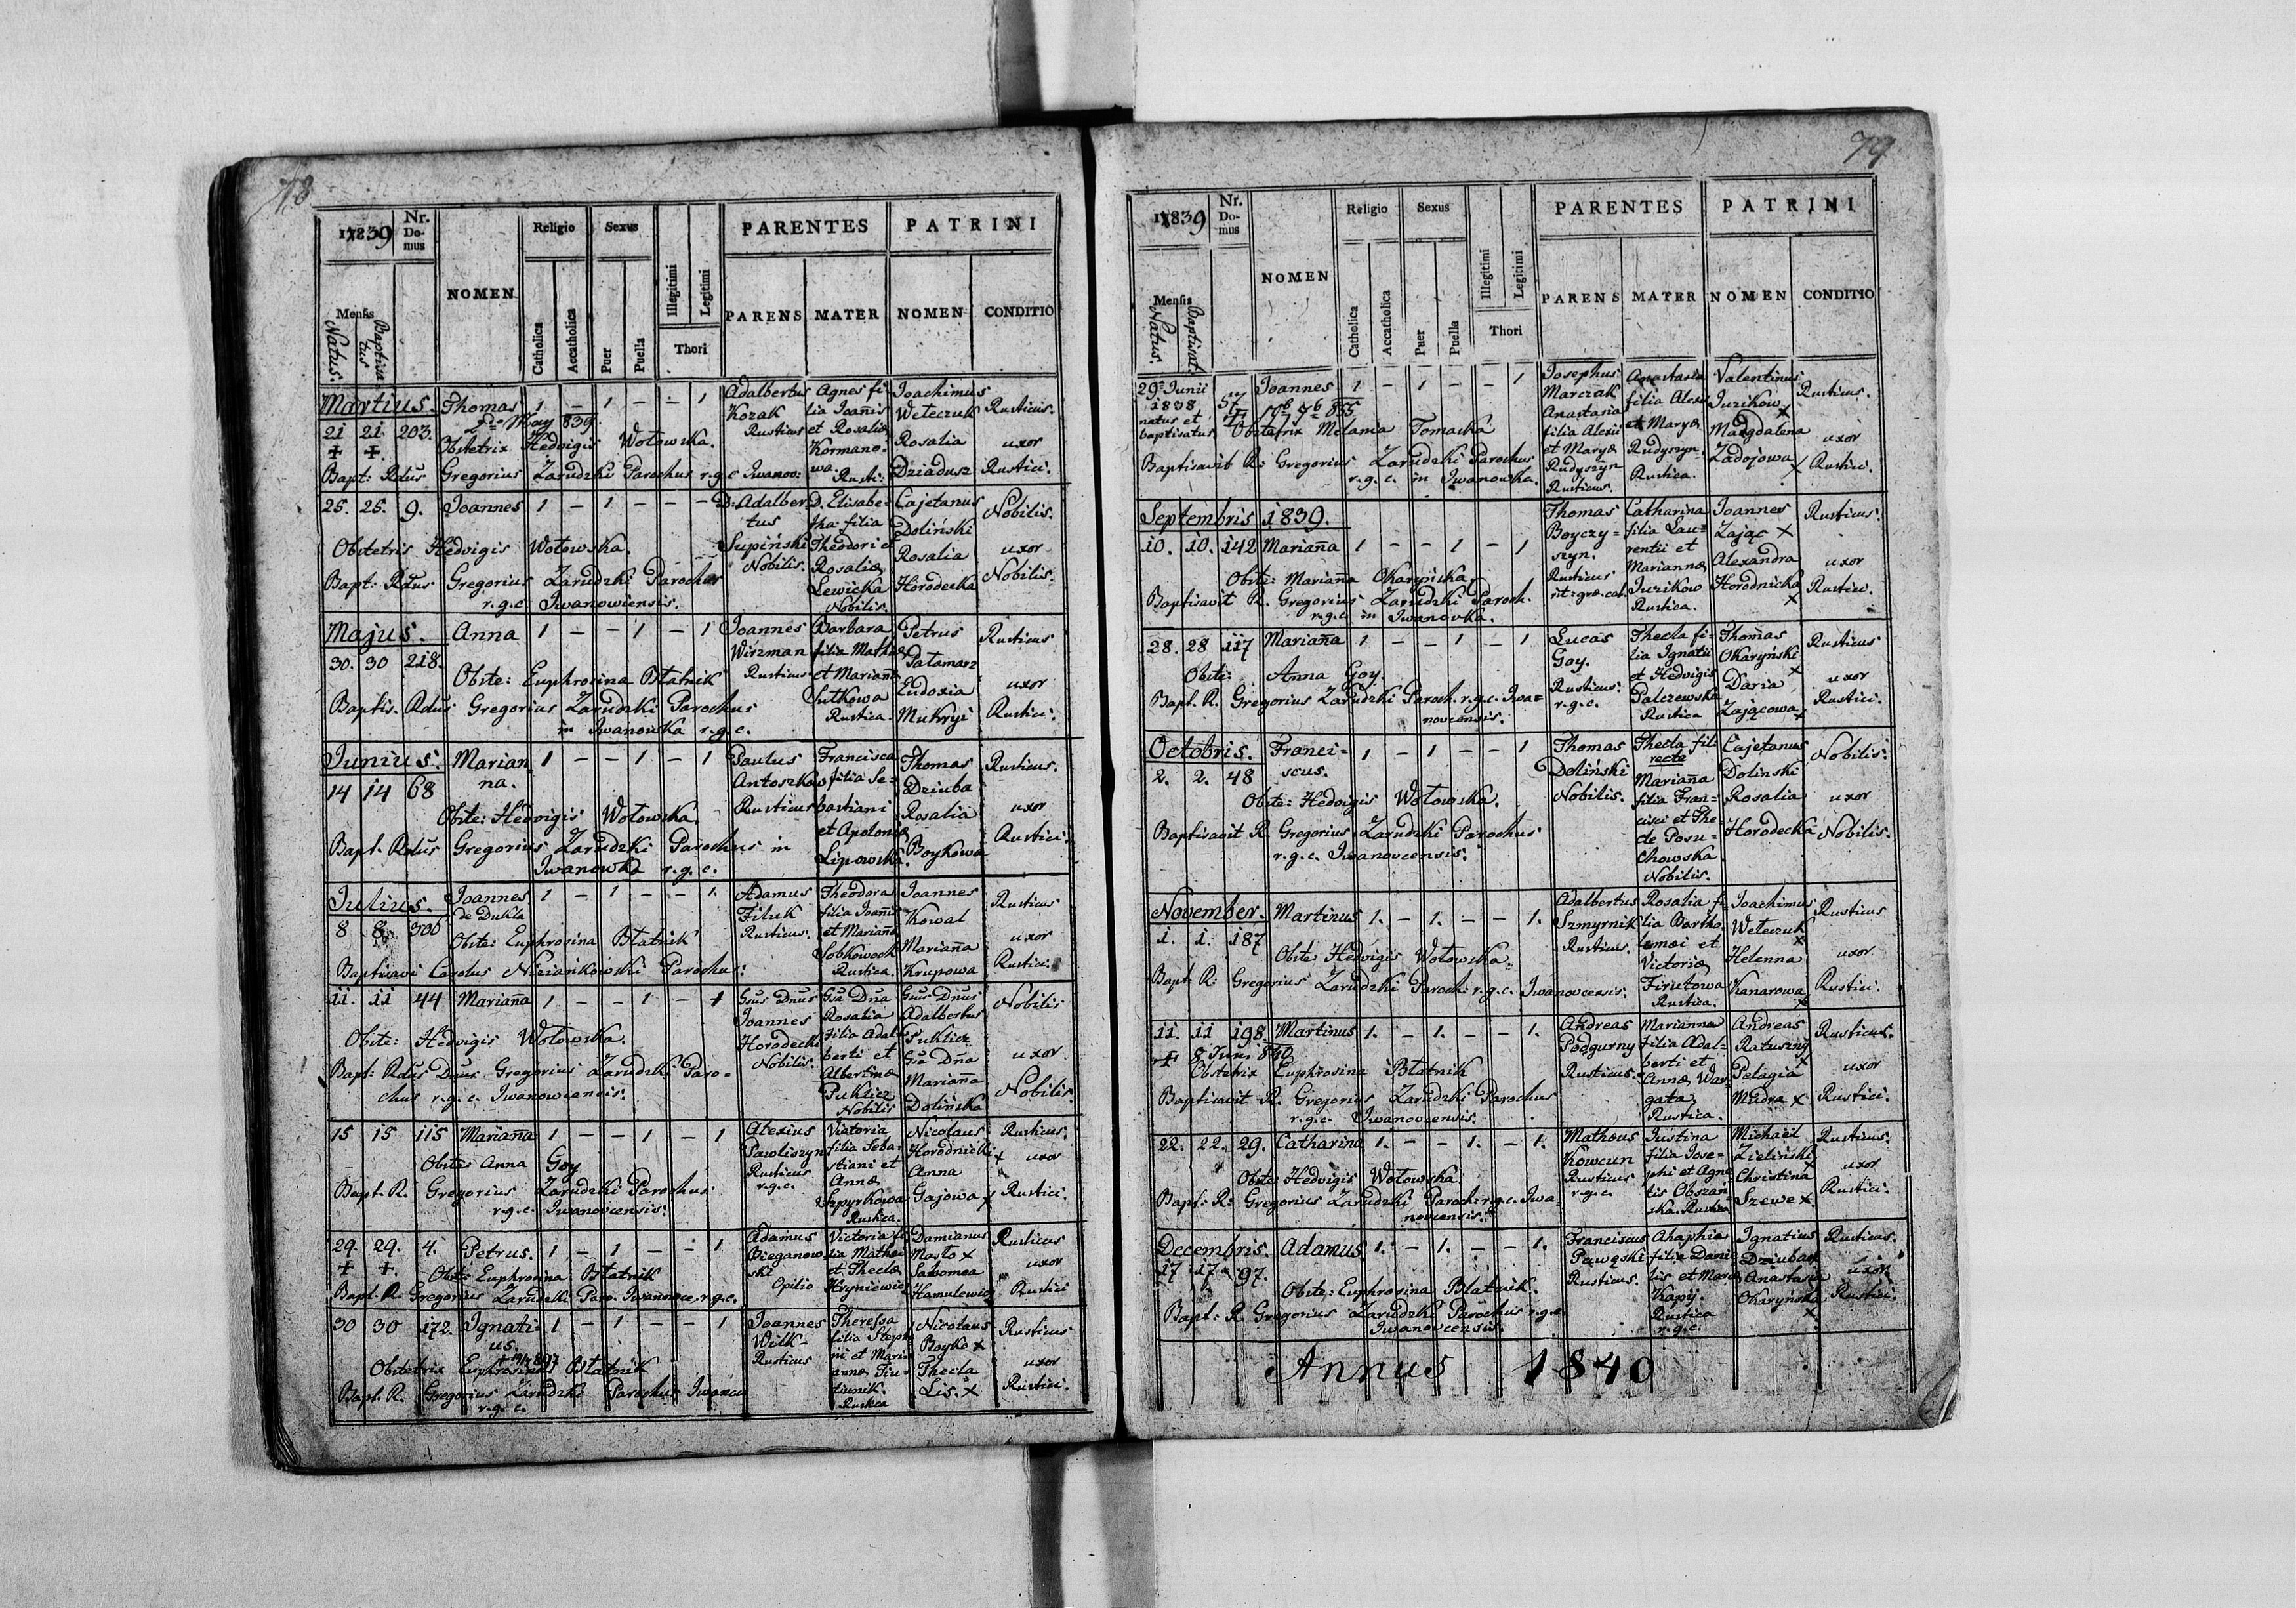 78
1839
Nr. Domus
NOMEN
Religio
Sexus
Illegitimi
Legitimi
PARENTES
PATRINI
Mensis
Natus.
Baptisatus
Catholica
Accatholica
Puer
Puella
Thori
PARENS
MATER
NOMEN
CONDITIO
Martius. Thomas 1 – 1 – – 1
May 839.
21 21. 203. Obstetrix Hedvigis Wołowska.
+ +.
Bapt: Rdus Gregorius Zarudzki Parochus r.g.c Iwanow:
Adalbertus
Kozak
Rusticus
Agnes fi
lia Joañis
et Rosaliæ
Kormano:
wa.
Rusti:
Joachimus
Weteczuk
Rosalia
Dziadusz
Rusticus.
uxor
Rustici.
25. 25. 9. Joannes 1 – 1 – –
Obstetris Hedvigis Wołowska.
Bapt: Rdus Gregorius Zarudzki Parochus
r.g.c Iwanowiensis.
D: Adalber
tus
Supiński
Nobilis.
D. Elisabe:
tha filia
Theodori et
Rosaliæ
Lewicka
Nobilis.
Cajetanus
Doliński
Rosalia
Horodecka
Nobilis.
uxor
Nobilis.
Majus. Anna 1 – – 1 – 1
30. 30 218.
Obste: Euphrosina Błatnik
Baptis. Rdus Gregorius Zarudzki Parochus
in Iwanowka r.g.c.
Joannes
Wirzman
Rusticus
Barbara
filia Mathæ
et Mariañ
Sutkowa
Rustica.
Petrus
Patamarz
Eudoxia
Mukryi
Rusticus
uxor
Rustici:
Junius. Marian
na. 1 – – 1 – 1
14 14 68
Obste: Hedvigis Wołowska.
Bapt. Rdus Gregorius Zarudzki Parochus in
Iwanowka r.g.c.
Paulus
Antoszkow
Rusticus
Francisca
filia Se=
bastiani
et Apolonia
Lipowska.
Thomas
Dziuba
Rosalia
Boykowa
Rusticus.
uxor
Rustici:
Julius. Joannes
de Dukla 1 – 1 – – 1.
8 8. 300
Obste: Euphrosina Błatnik
Baptisavi Carolus Niziańkowski Parochus:
Adamus
Filuk
Rusticus.
Theodora
filia Joañis
et Mariañæ
Sobkowoch
Rustica.
Joannes
Kowal
Mariaña
Krupowa
Rusticus
uxor
Rustici:
11. 11 44 Mariaña 1 – – 1 – 1
Obste: Hedvigis Wołowska.
Bapt: Rdus Dnus Gregorius Zarudzki Paro=
chus r.g.c. Iwanowcensis.
Gsus Dnus
Joannes
Horodecki
Nobilis.
Gsa Dña
Rosalia
filia Adal
berti et
Albertinæ
Puklicz
Nobilis
Gsus Dnus
Adalbertus
Puklicz
Gsa Dña
Mariaña
Dolińska
Nobilis
uxor
Nobilis
15 15 115 Mariaña 1 – – 1 – 1
Obste: Anna Goy
Bapt. R. Gregorius Zarudzki Parochus.
r.g.c. Iwanovcensis:
Alexius
Pawliszyn
Rusticus
r.g.c.
Victoria
filia Seba=
stiani et
Annæ
Szpyrkowa
Rustica.
Nicolaus
Horodnicki
Anna
Gajowa x
Rusticus.
x uxor
Rustici.
29. 29. 4. Petrus. 1 – 1 – – 1
+ +.
Obst: Euphrosina Błatnik
Bapt. R. Gregorius Zarudzki Paro. Iwanovce. r.g.c.
Adamus
Bieganow
ski
Opilio
Victoria fi
lia Mathæi
et Theclæ
Hryniewicz
Damianus
Masło x
Salomea
Hamulewicz
Rusticus
uxor
Rustici
30 30 172. Ignati=
us. 1 – 1 – – 1
Obstetrix Euphrosina Błatnik
Bapt. R. Gregorius Zarudzki Parochus Iwanov
r.g.c.
Joannes
Wilk
Rusticus
Theressa
filia Steph
ni et Mari
annæ Fiu=
tiunik.
Rustica
Nicolaus
Boyko x
Thecla
Lis. x
Rusticus
uxor
Rustici.
79
1839
Nr. Domus
NOMEN
Religio
Sexus
Illegitimi
Legitimi
PARENTES
PATRINI
Mensis
Natus.
Baptisat
Catholica
Accatholica
Puer
Puella
Thori
PARENS
MATER
NOMEN
CONDITIO
29a Junii
1838 57 Joannes 1 – 1 – – 1
natus et
baptisatus Obstetrix Melania Tomacka
Baptisavit R: Gregorius Zarudzki Parochus
r.g.c. in Iwanowka.
Josephus
Marczak
Anastasia
filia Alexii
et Maryæ
Rudyszyn
Rusticus.
Anastasia
filia Alexi
et Maryæ
Rudyszyn.
Rustica.
Valentinus
Juzikow
x
Magdalena
Zadojowa
x
Rusticus.
uxor
Rustici.
Septembris 1839.
10. 10. 142 Mariaña 1 – – 1 – 1
Obste: Mariaña Okaryńska
Baptisavit R. Gregorius Zarudzki Paroch.
r.g.c in Iwanovka.
Thomas
Boyczy=
szyn.
Rusticus
rit: græ. cat.
Catharina
filia Lau=
rentii et
Mariannæ
Juzikow
Rustica.
Joannes
Zając x
Alexandra
Horodnicka
x
Rusticus.
uxor
Rustici.
28. 28 117 Mariaña 1 – – 1 – 1
Obste: Anna Goy.
Bapt. R. Gregorius Zarudzki Paroch. r.g.c. Iwa=
novcensis.
Lucas
Goy.
Rusticus.
r.g.c.
Thecla fi=
lia Ignatii
et Hedvigis
Palczewska
Rustica
Thomas
Okaryński
x
Daria
Zającowa
x
Rusticus
uxor
Rustici.
Octobris. Franci=
scus. 1 – 1 – – 1
2. 2. 48
Obste: Hedvigis Wołowska.
Baptisavit R. Gregorius Zarudzki Parochus
r.g.c. Iwanovcensis.
Thomas
Doliński
Nobilis.
Thecla fili
recte
Mariaña
filia Fran=
cisci et The=
clæ Posu=
chowska
Nobilis.
Cajetanus
Dolinski
Rosalia
Horodecka
Nobilis.
uxor
Nobilis.
November. Martinus 1. – 1. – – 1.
1. 1. 187
Obste: Hedvigis Wołowska.
Bapt R: Gregorius Zarudzki Paroch: r.g.c. Iwanovcensis.
Adalbertus
Szmyrnik
Rusticus.
Rosalia fi
lia Bartho
lomæi et
Victoriæ
Firutowa
Rustica.
Joachimus
Weteczuk
x
Helenna
Kanarowa
x
Rusticus
uxor
Rustici.
11. 11 198. Martinus 1. – 1. – – 1.
+ 8 Juni 840
Obstetrix Euphrosina Błatnik
Baptisavit R. Gregorius Zarudzki Parochus
r.g.c. Iwanovcensis.
Andreas
Podgurny
Rusticus.
Marianna
filia Adal=
berti et
Annæ War
gata
Rustica.
Andreas
Ratuszny
x
Pelagia
Mudra x
Rusticus.
uxor
Rustici.
22. 22. 29. Catharina 1. – – 1. – 1.
Obste: Hedvigis Wołowska.
Bapt: R: Gregorius Zarudzki Paroch: r.g.c. Iwa=
novcensis.
Mathæus
Kowcun
Rusticus
r.g.c.
Justina
filia Jose=
phi et Agne
tis Obszań
ska. Rustica
Michael
Zieliński
x
Christina
Szewe x.
Rusticus.
uxor
Rustici.
Decembris. Adamus 1. – 1. – – 1.
17 17 97.
Obste: Euphrosina Błatnik.
Bapt: R. Gregorius Zarudzki Parochus r.g.c.
Iwanovcensis.
Franciscus
Pawęski
Rusticus.
Ahaphia
filia Danie
lis et Mariæ
Kapij.
Rustica
r.g.c.
Ignatius
Dziuba x
Anastasia
Okaryńska
x
Rusticus.
uxor.
Rustici.
Annus 1840